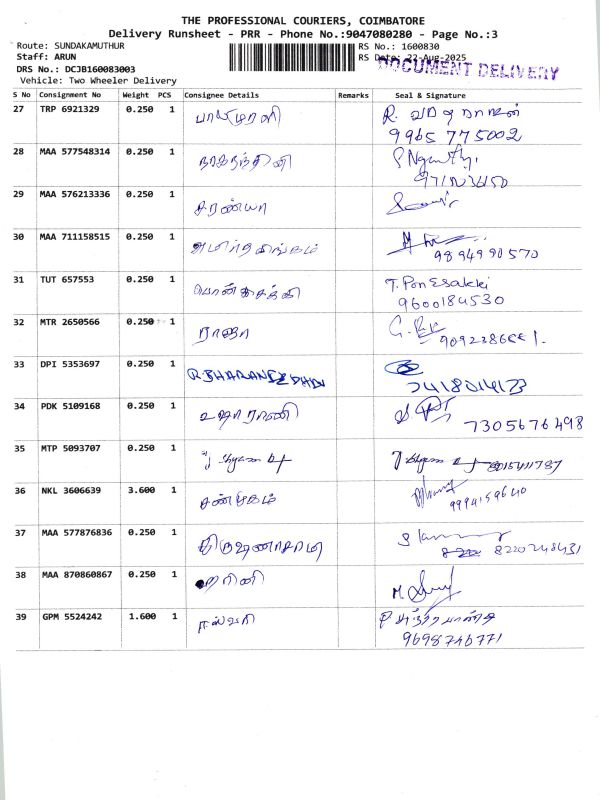 THE PROFESSIONAL COURIERS, COIMBATORE
Delivery Runsheet - PRR - Phone No.:9047080280 - Page No.:3
Route: SUNDAKAMUTHUR
RS No.: 1600830
Staff: ARUN
RS Date: 22-Aug-2025
DOCUMENT DELIVERY
DRS No.: DCJB160083003
Vehicle: Two Wheeler Delivery
S No Consignment No Weight PCS Consignee Details Remarks Seal & Signature
27 TRP 6921329 0.250 1 பால்முரளி R. வரதராஜன்
9965 775002
28 MAA 577548314 0.250 1 நாகநந்தினி
29 MAA 576213336 0.250 1 சரண்யா
30 MAA 711158515 0.250 1 அமிர்தலிங்கம்
9894990570
31 TUT 657553 0.250 1 பொன்இசக்கி T. Pon Esakki
9600184530
32 MTR 2650566 0.250 1 ராஜா
33 DPI 5353697 0.250 1 R.BHARANEEDHARAN
7418014173
34 PDK 5109168 0.250 1 உஷாராணி
7305676498
35 MTP 5093707 0.250 1
36 NKL 3606639 3.600 1 சண்முகம்
9994159640
37 MAA 577876836 0.250 1 கிருஷ்ணசாமி
8220248431
38 MAA 870860867 0.250 1 ஹரிணி
39 GPM 5524242 1.600 1 ஈஸ்வரி
9698746771